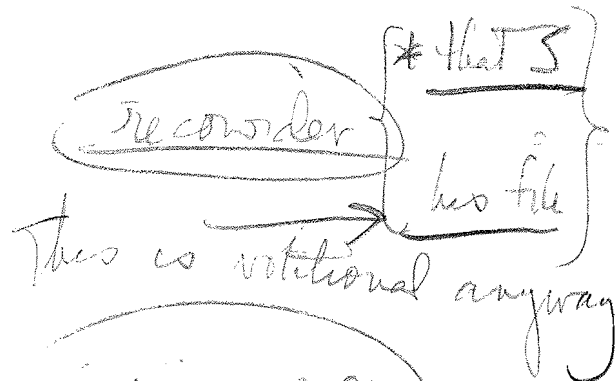 reconsider
* that S
his file
This is volitional anyway